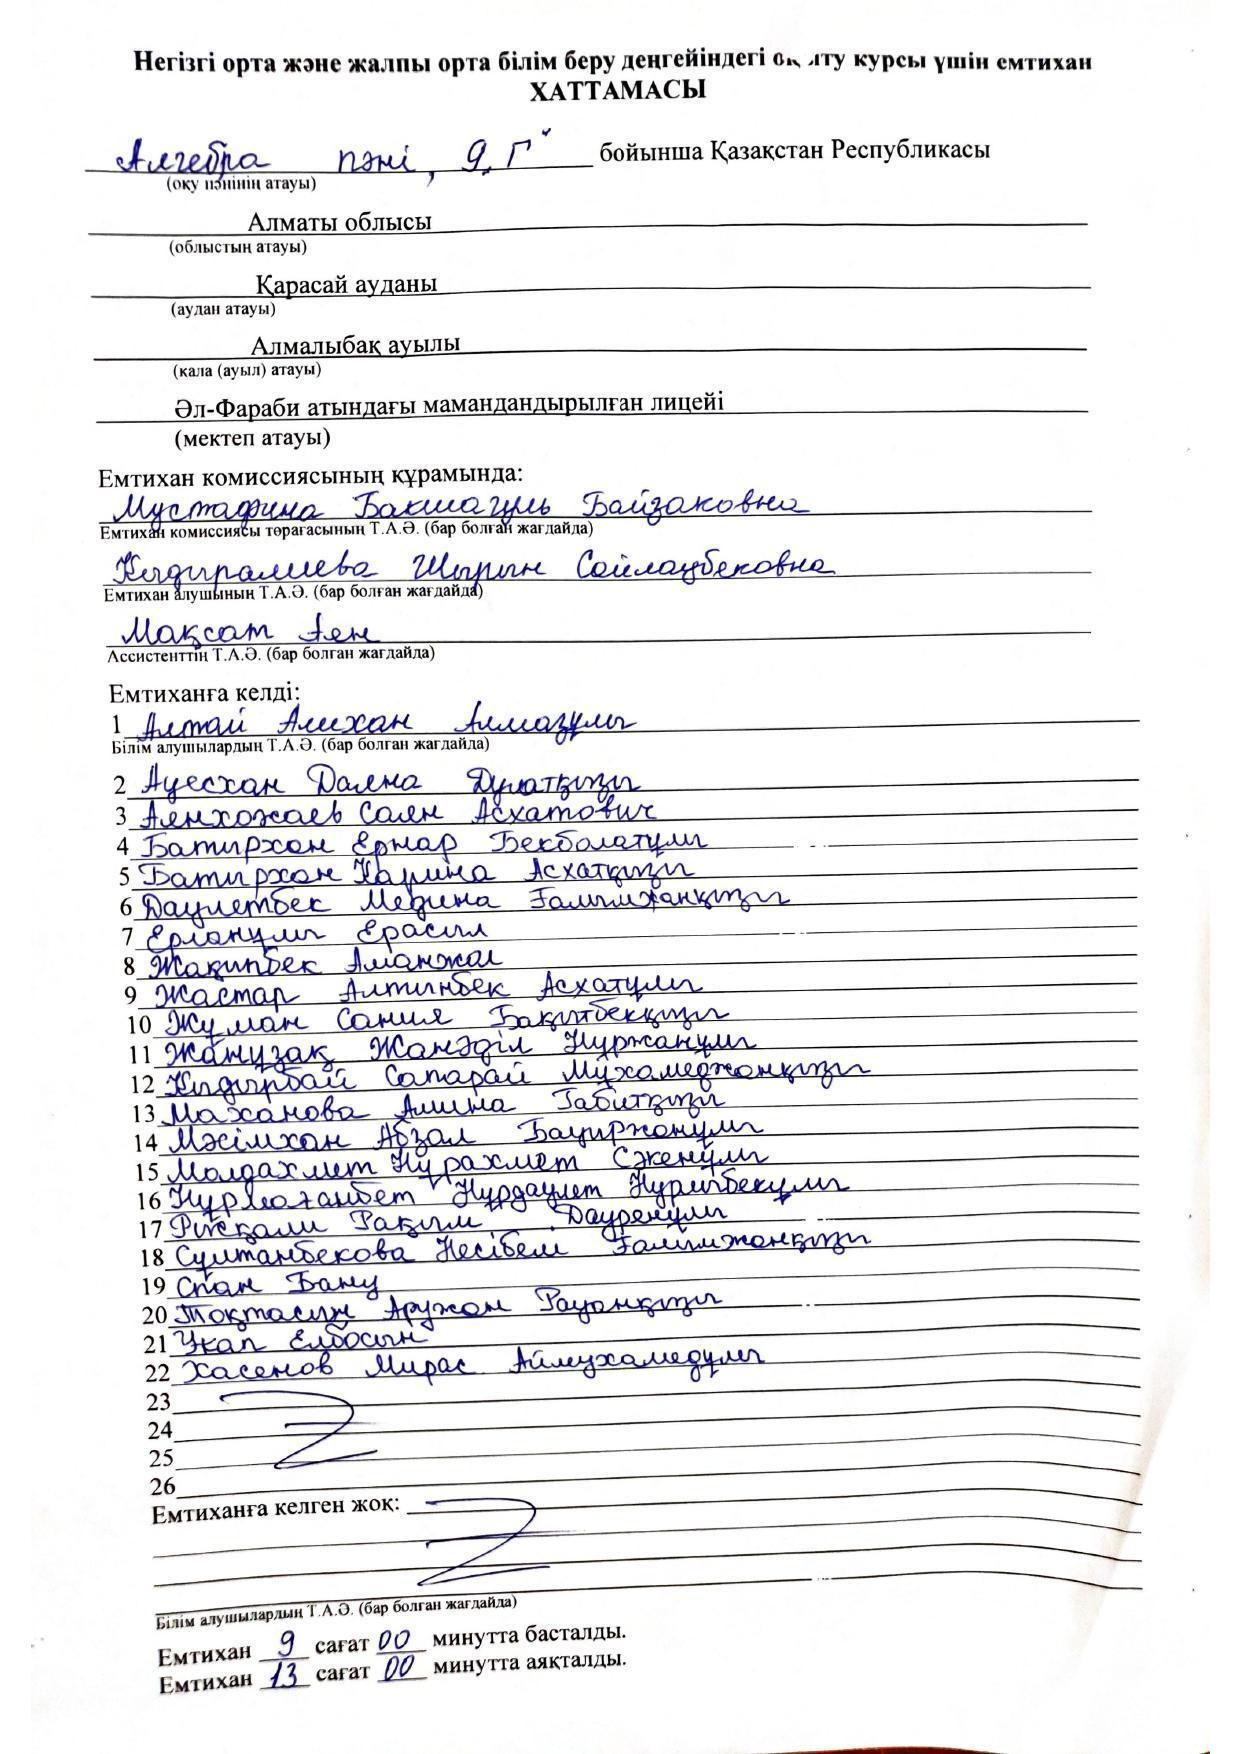 Негізгі орта және жалпы орта білім беру деңгейіндегі оқыту курсы үшін емтихан
ХАТТАМАСЫ
Алгебра пәні, 9 "Г" бойынша Қазақстан Республикасы
(оқу пәнінің атауы)
Алматы облысы
(облыстың атауы)
Қарасай ауданы
(аудан атауы)
Алмалыбақ ауылы
(кала (ауыл) атауы)
Әл-Фараби атындағы мамандандырылған лицейі
(мектеп атауы)
Емтихан комиссиясының құрамында:
Мустафина Бакшагуль Байзаковна
Емтихан комиссиясы төрағасының Т.А.Ә. (бар болған жағдайда)
Кыдыралиева Шырын Сайлаубековна
Емтихан алушының Т.А.Ә. (бар болған жағдайда)
Мақсат Аян
Ассистенттің Т.А.Ә. (бар болған жағдайда)
Емтиханға келді:
1 Алтай Алихан Алмазұлы
Білім алушылардың Т.А.Ә. (бар болған жағдайда)
2 Ауесхан Даяна Дулатқызы
3 Аянхожаев Саян Асхатович
4 Батырхан Ернар Бекболатұлы
5 Батырхан Карина Асхатқызы
6 Даулетбек Медина Ғалымжанқызы
7 Ерланұлы Ерасыл
8 Жақипбек Аманжол
9 Жастар Алтынбек Асхатұлы
10 Жұман Сания Бақытбекқызы
11 Жанұзақ Жанәділ Нұржанұлы
12 Кыдырбай Сапарай Мұхамеджанқызы
13 Маханова Амина Ғабитқызы
14 Мәсімхан Абзал Бауыржанұлы
15 Молдахмет Нұрахмет Сәкенұлы
16 Нұрмағанбет Нұрдаулет Нұрлыбекұлы
17 Рысқали Рақым Дауренұлы
18 Сұлтанбекова Несібелі Ғалымжанқызы
19 Спан Бану
20 Тоқтасын Аружан Рауанқызы
21 Укап Елбосын
22 Хасенов Мирас Аймұхамедұлы
23
24
25
26
Емтиханға келген жоқ:
Білім алушылардың Т.А.Ә. (бар болған жағдайда)
Емтихан 9 сағат 00 минутта басталды.
Емтихан 13 сағат 00 минутта аяқталды.